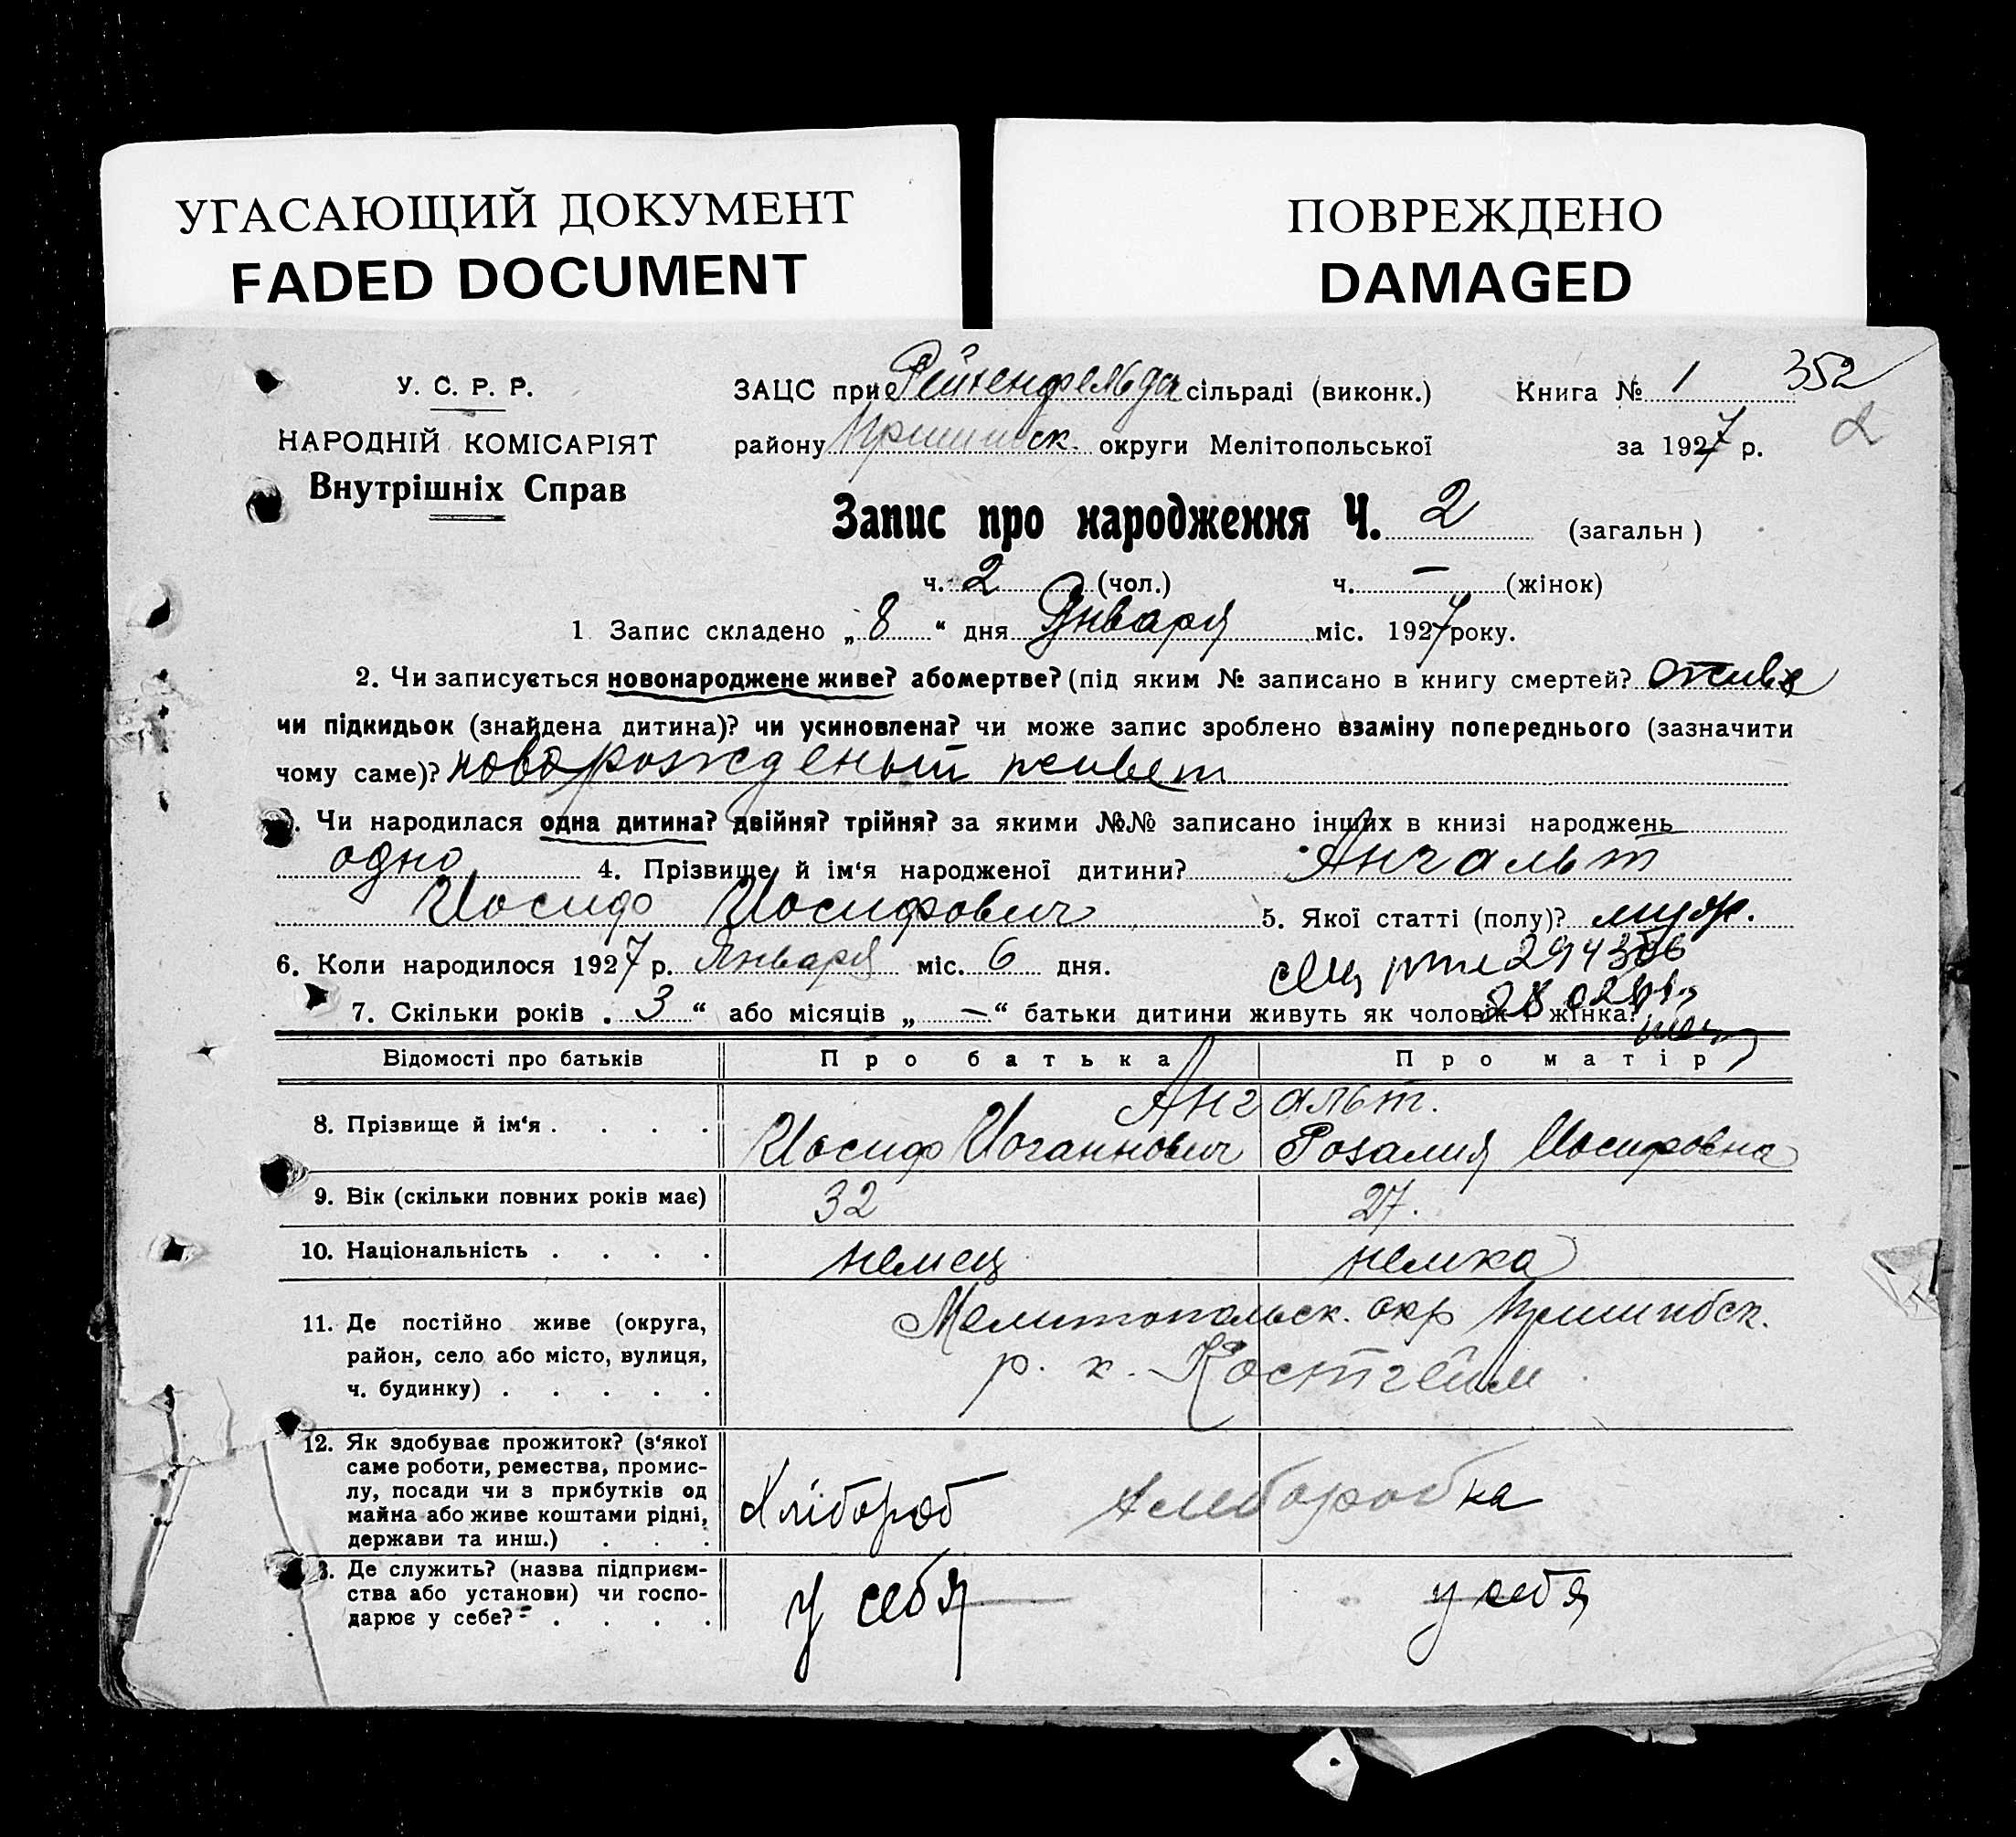 УГАСАЮЩИЙ ДОКУМЕНТ
FADED DOCUMENT
ПОВРЕЖДЕНО
DAMAGED
У. С. Р. Р.
НАРОДНІЙ КОМІСАРІЯТ
Внутрішніх Справ
ЗАЦС при Рейхенфельда сільраді (виконк.) Книга № 1 352
району Пришибск. округи Мелітопольської за 1927 р.
Запис про народження Ч. 2 (загальн )
ч. 2 (чол.) ч. — (жінок)
1 Запис складено „ 8 “ дня Января міс. 1927 року.
2. Чи записується новонароджене живе? або мертве? (під яким № записано в книгу смертей?
чи підкидьок (знайдена дитина)? чи усиновлена? чи може запис зроблено взаміну попереднього (зазначити
чому саме)? новорожденый живет
3. Чи народилася одна дитина? двійня? трійня? за якими №№ записано інших в книзі народжень
одно 4. Прізвище й ім‘я народженої дитини? Ангальт
Иосиф Иосифович 5. Якої статті (полу)? муж.
6. Коли народилося 1927 р. Января міс. 6 дня.
7. Скільки років „ 3 “ або місяців „ — “ батьки дитини живуть як чоловік і жінка?
Відомості про батьків Про батька Про матір
Ангальт.
8. Прізвище й ім‘я . . . . Иосиф Иоганнович Розалия Иосифовна
9. Вік (скільки повних років має) 32 27.
10. Національність . . . . немец немка
11. Де постійно живе (округа, Мелитопольск. окр Пришибск.
район, село або місто, вулиця, р. х. Костгейм
ч. будинку) . . . . .
12. Як здобуває прожиток? (з‘якої
саме роботи, ремества, промис-
лу, посади чи з прибутків од Хлібороб хлеборобка
майна або живе коштами рідні,
держави та инш.) . . .
13. Де служить? (назва підприєм-
ства або установи) чи госпо- у себя у себя
дарює у себе? . . . .